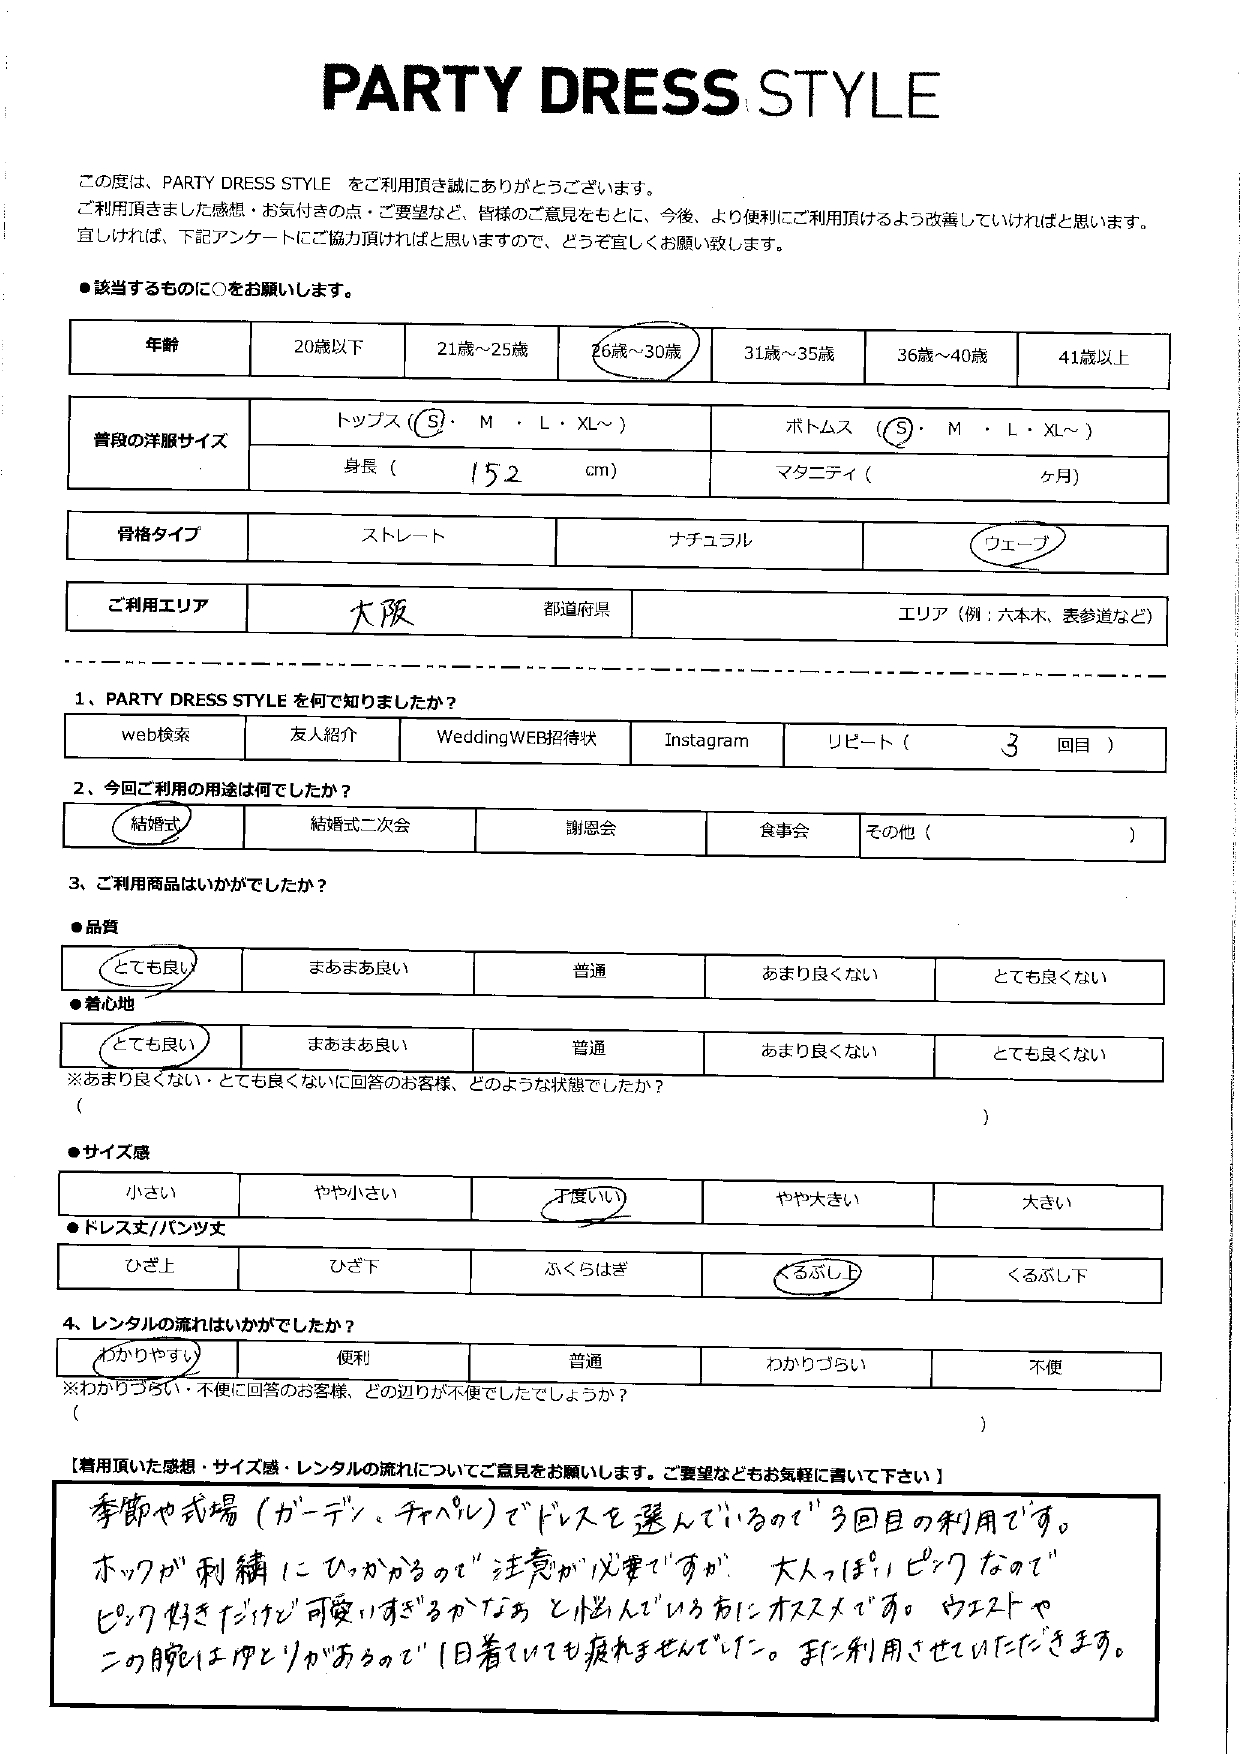 PARTY DRESS STYLE
この度は、PARTY DRESS STYLE をご利用頂き誠にありがとうございます。
ご利用頂きました感想・お気付きの点・ご要望など、皆様のご意見をもとに、今後、より便利にご利用頂けるよう改善していければと思います。
宜しければ、下記アンケートにご協力頂ければと思いますので、どうぞ宜しくお願い致します。
●該当するものに○をお願いします。
年齢 20歳以下 21歳～25歳 26歳～30歳 31歳～35歳 36歳～40歳 41歳以上
普段の洋服サイズ トップス (S・ M ・ L・ XL～ ) ボトムス (S・ M ・ L・ XL～ )
身長 ( 152 cm) マタニティ ( ヶ月)
骨格タイプ ストレート ナチュラル ウェーブ
ご利用エリア 大阪 都道府県 エリア（例：六本木、表参道など）
1、PARTY DRESS STYLE を何で知りましたか？
web検索 友人紹介 WeddingWEB招待状 Instagram リピート ( 3 回目 )
2、今回ご利用の用途は何でしたか？
結婚式 結婚式二次会 謝恩会 食事会 その他 ( )
3、ご利用商品はいかがでしたか？
●品質
とても良い まあまあ良い 普通 あまり良くない とても良くない
●着心地
とても良い まあまあ良い 普通 あまり良くない とても良くない
※あまり良くない・とても良くないに回答のお客様、どのような状態でしたか？
( )
●サイズ感
小さい やや小さい 丁度いい やや大きい 大きい
●ドレス丈/パンツ丈
ひざ上 ひざ下 ふくらはぎ くるぶし上 くるぶし下
4、レンタルの流れはいかがでしたか？
わかりやすい 便利 普通 わかりづらい 不便
※わかりづらい・不便に回答のお客様、どの辺りが不便でしたでしょうか？
( )
【着用頂いた感想・サイズ感・レンタルの流れについてご意見をお願いします。ご要望などもお気軽に書いて下さい】
季節や式場(ガーデン、チャペル)でドレスを選んでいるので3回目の利用です。
ホックが刺繍にひっかかるので注意が必要ですが、大人っぽいピンクなので
ピンク好きだけど可愛いすぎるかなぁと悩んでいる方にオススメです。ウエストや
二の腕はゆとりがあるので1日着ていても疲れませんでした。また利用させていただきます。